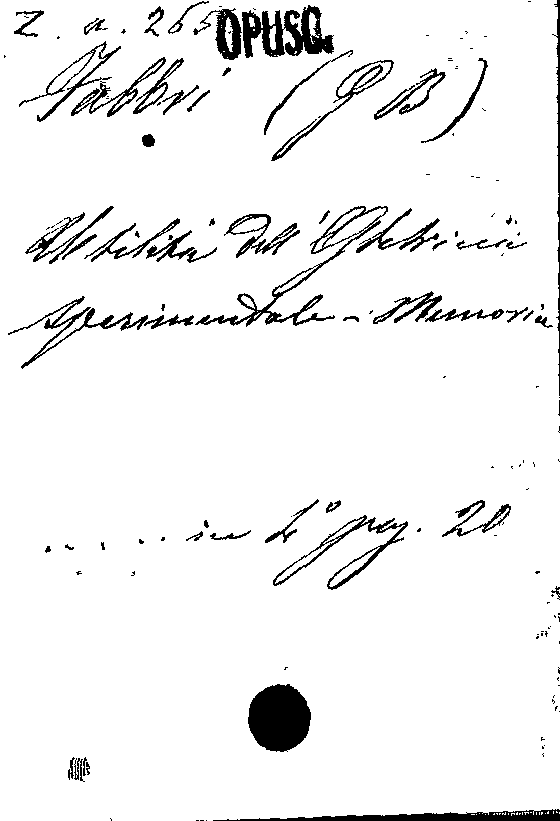 Z. a. 265 OPUSC.
Fabbri (G B)
Utilità dell'Ostetricia
sperimentale - Memoria
..... in 4° pag. 20